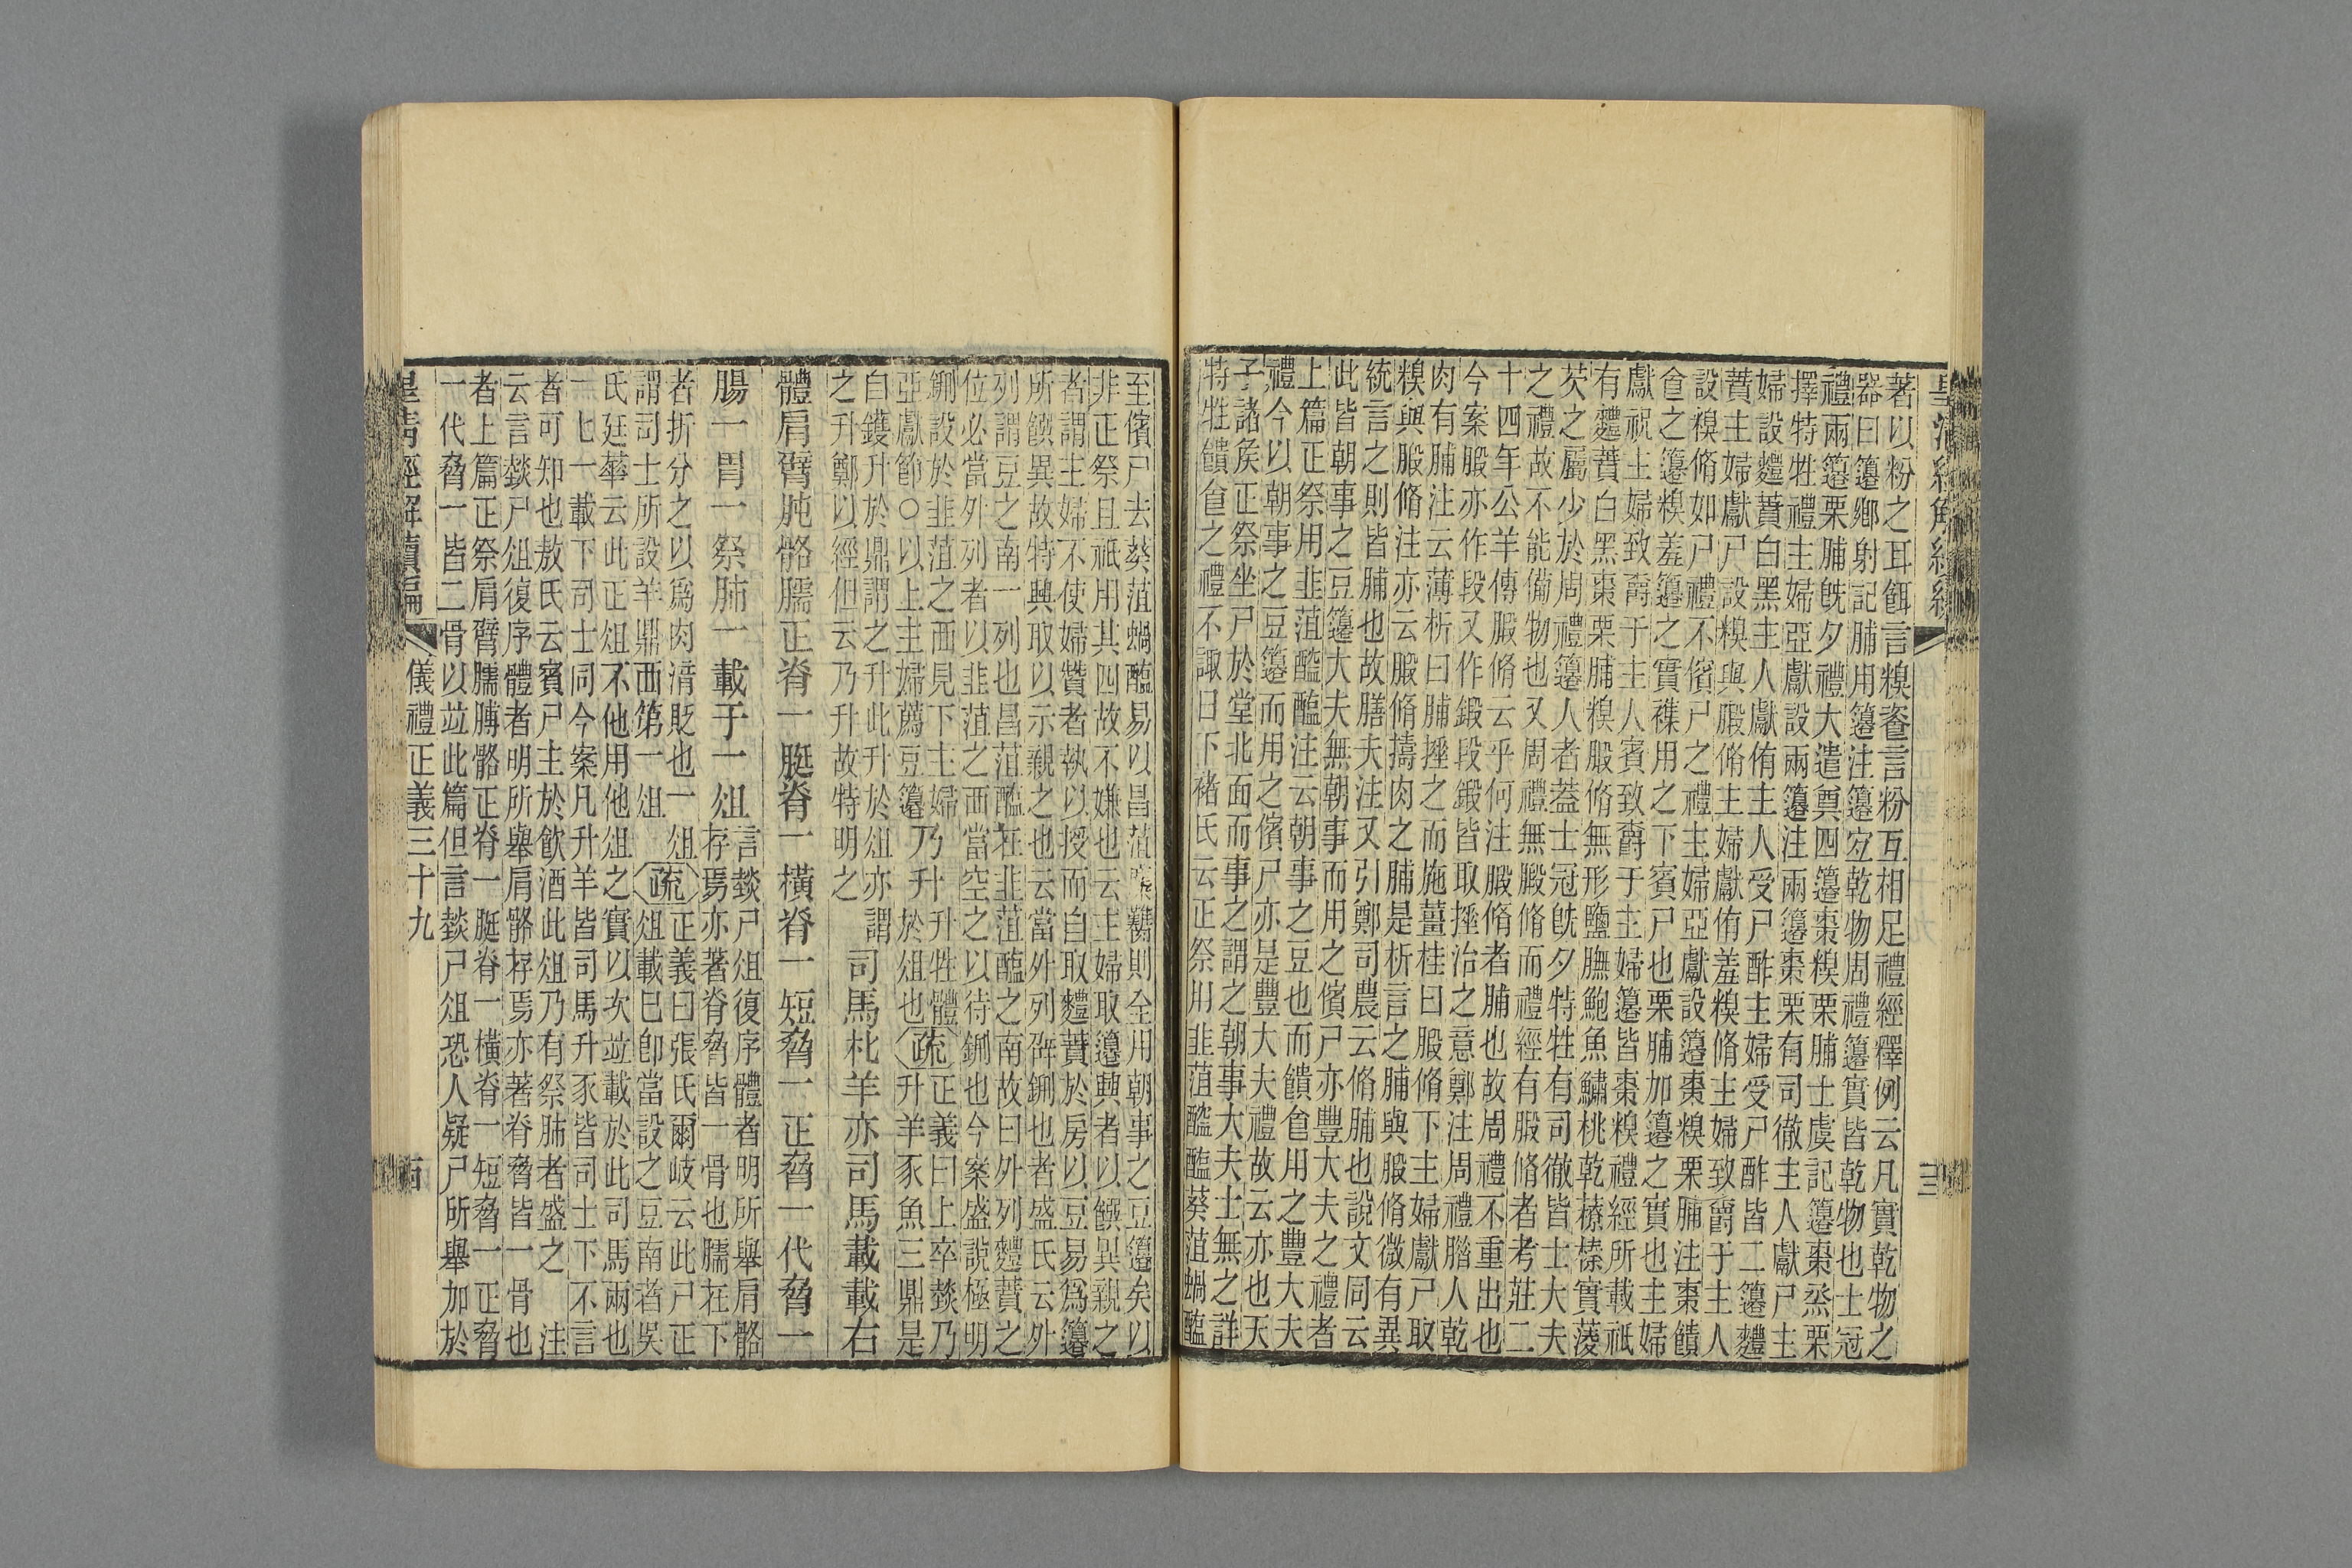 著以粉之耳餌言糗餈言粉互相足禮經釋例云凡實乾物之
器曰籩鄉射記脯用籩注籩宐乾物周禮籩實皆乾物也士冠
禮兩籩栗脯旣夕禮大遣奠四籩棗糗栗脯士虞記籩棗烝栗
擇特牲禮主婦亞獻設兩籩注兩籩棗栗有司徹主人獻尸主
婦設麷蕡白黑主人獻侑主人受尸酢主婦受尸酢皆二籩麷
蕡主婦獻尸設糗與腶脩主婦獻侑羞糗脩主婦致爵于主人
設糗脩如尸禮不儐尸之禮主婦亞獻設籩棗糗栗脯注棗饋
食之籩糗羞籩之實襍用之下賓尸也栗脯加籩之實也主婦
獻祝主婦致爵于主人賓致爵于主婦籩皆棗糗禮經所載祇
有麷蕡白黑棗栗脯糗腶脩無形鹽膴鮑魚鱐桃乾䕩榛實蔆
芡之屬少於周禮籩人者蓋士冠旣夕特牲有司徹皆士大夫
之禮故不能備物也又周禮無腶脩而禮經有腶脩者考莊二
十四年公羊傳腶脩云乎何注腶脩者脯也故周禮不重出也
今案腶亦作段又作鍛段鍛皆取捶治之意鄭注周禮腊人乾
肉有脯注云薄析曰脯捶之而施薑桂曰腶脩下主婦獻尸取
糗與腶脩注亦云腶脩擣肉之脯是析言之脯與腶脩微有異
統言之則皆脯也故膳夫注又引鄭司農云脩脯也說文同云
此皆朝事之豆籩大夫無朝事而用之儐尸亦豐大夫之禮者
上篇正祭用韭菹醓醢注云朝事之豆也而饋食用之豐大夫
禮今以朝事之豆籩而用之儐尸亦是豐大夫禮故云亦也天
子諸矦正祭坐尸於堂北面而事之謂之朝事大夫士無之詳
特牲饋食之禮不諏日下褚氏云正祭用韭菹醓醢葵菹蝸醢
皇清經解續編
三
至儐尸去葵菹蝸醢易以昌菹麋臡則全用朝事之豆籩矣以
非正祭且祇用其四故不嫌也云主婦取籩興者以饌異親之
者謂主婦不使婦贊者執以授而自取麷蕡於房以豆易爲籩
所饌異故特興取以示親之也云當外列㪺鉶也者盛氏云外
列謂豆之南一列也昌菹醢在韭菹醢之南故曰外列麷蕡之
位必當外列者以韭菹之西當空之以待鉶也今案盛說極明
鉶設於韭菹之西見下主婦
亞獻節○以上主婦薦豆籩
乃升升牲體於俎也
疏正義曰上卒燅乃升羊豕魚三鼎是
自鑊升於鼎謂之升此升於俎亦謂
之升鄭以經但云乃升故特明之
司馬朼羊亦司馬載載右
體肩臂肫骼臑正脊一脡脊一橫脊一短脅一正脅一代脅一
腸一胃一祭肺一載于一俎
言燅尸俎復序體者明所舉肩骼
存焉亦著脊脅皆一骨也臑在下
者折分之以爲肉湆貶也一俎
謂司士所設羊鼎西第一俎
疏正義曰張氏爾岐云此尸正
俎載已卽當設之豆南者吳
氏廷華云此正俎不他用他俎之實以次並載於此司馬兩也
一匕一載下司士同今案凡升羊皆司馬升豕皆司士下不言
者可知也敖氏云賓尸主於飮酒此俎乃有祭肺者盛之　注
云言燅尸俎復序體者明所舉肩骼存焉亦著脊脅皆一骨也
者上篇正祭肩臂臑膊骼正脊一脡脊一橫脊一短脅一正脅
一代脅一皆二骨以竝此篇但言燅尸俎恐人疑尸所舉加於
皇淸經解續編
儀禮正義三十九